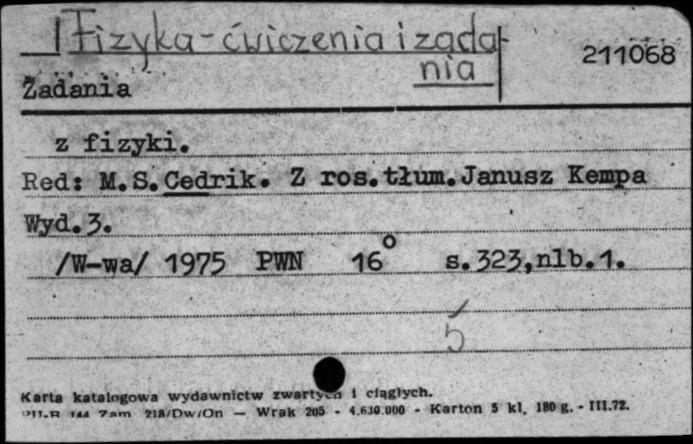 Fizyka-ćwiczenia i zada
nia
211068
Zadania
z fizyki.
Red: M.S.Cedrik. Z ros.tłum.Janusz Kempa
Wyd.3.
/W-wa/ 1975 PWN 16° s.323,nlb.1.
5
Karta katalogowa wydawnictw zwartych i ciągłych.
PU-B 144 Zam. 218/Dw/On — Wrak 205 - 4.630.000 - Karton 5 kl. 180 g. - III.72.